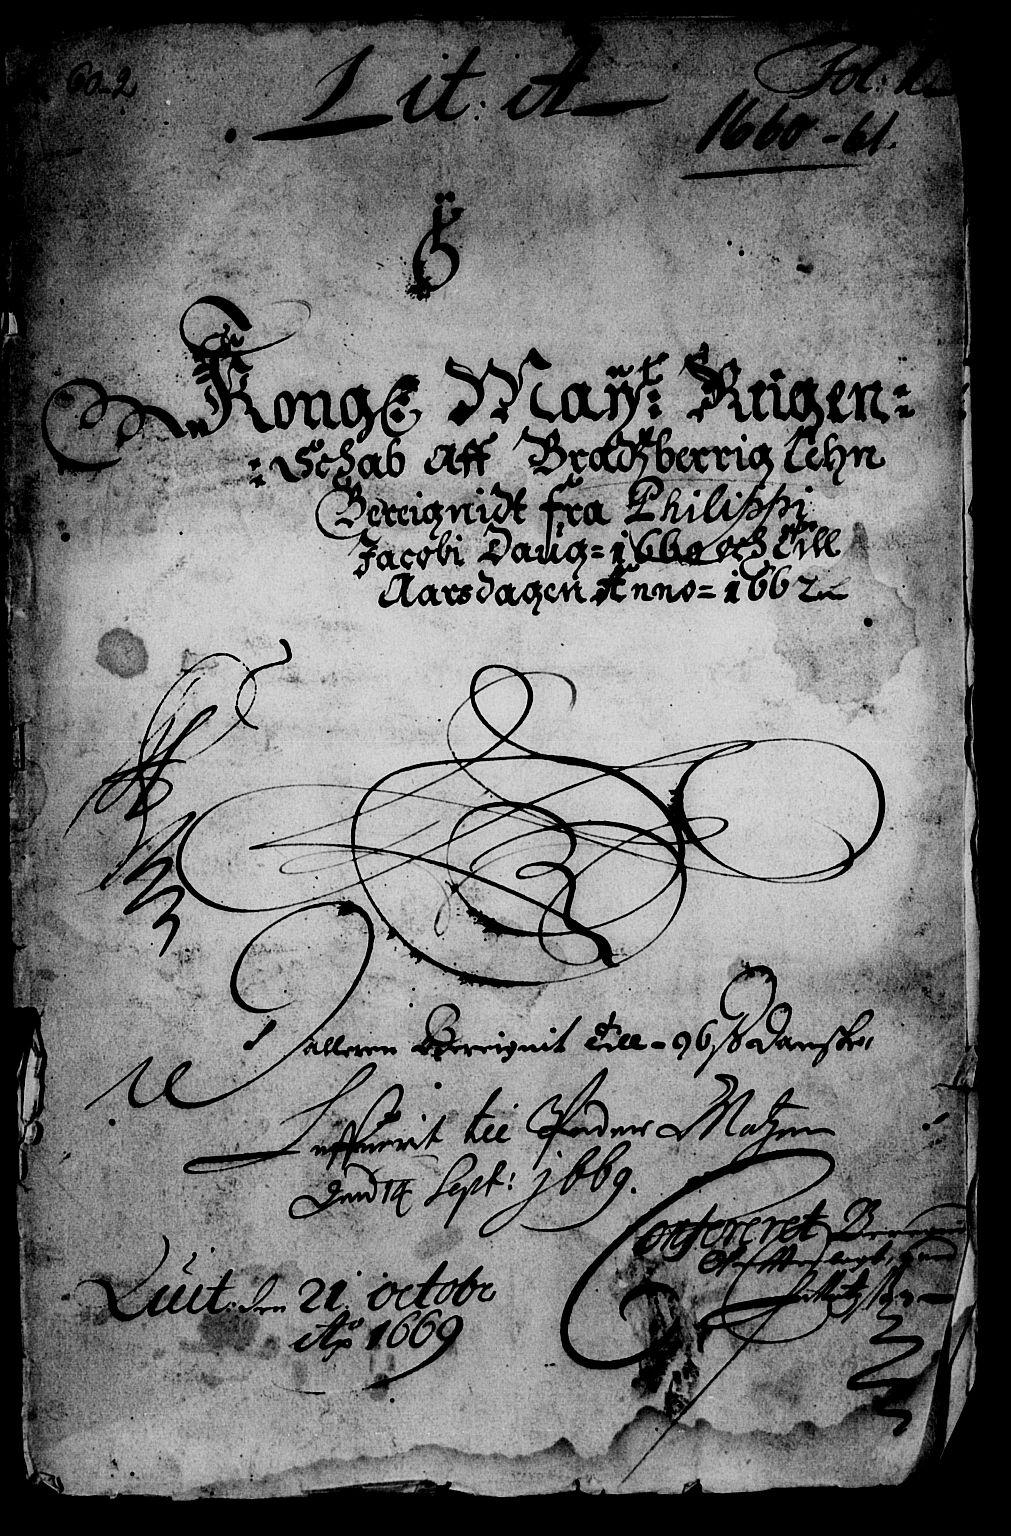 60-2
Lit: A
Fol:
1660-61.
Kongl: Maytz: Reigen=
=schab aff Bradtzberrig Lehn
Bereignidt fra Philippi
Jacobi Daug= 1660 och till
Aarsdagen Anno= 1662
alleren Bereignit till = 96
Leffuerit till Peder Matzen
Dend 14 Sept: 1669.
Confereret
Quit: den 21 octobr
Ao 1669